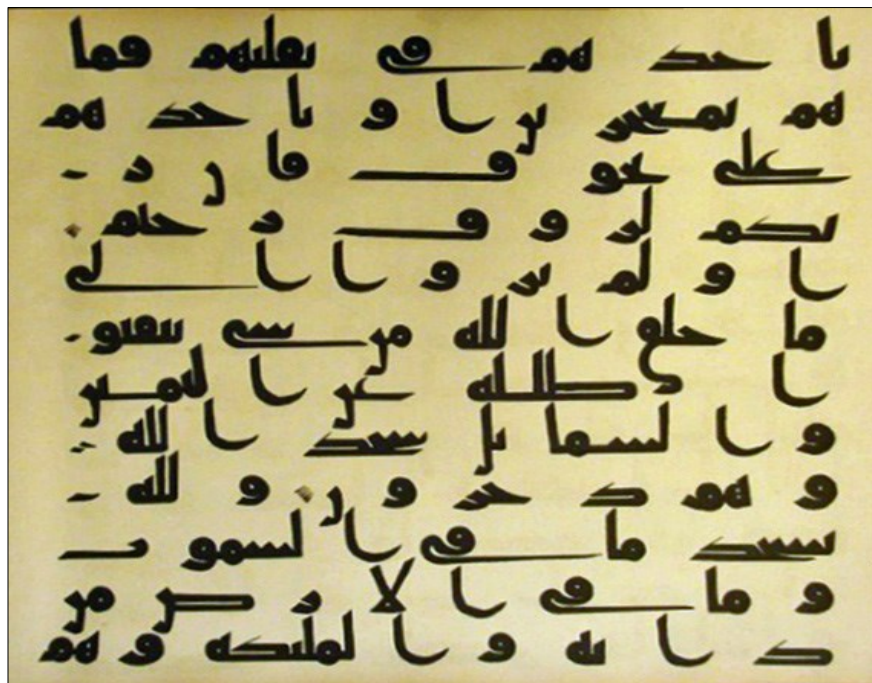 ياخذهم فى تقلبهم فما
هم بمعجزين او ياخذهم
على تخوف فان ر
بكم لروف رحيم
او لم يروا الى
ما خلق الله من شى يتفيو
ا ظلله عن اليمين
و الشمايل سجدا لله
و هم دخرون و لله
يسجد ما فى السموت
و ما فى الارض من
دابه و المليكه و هم